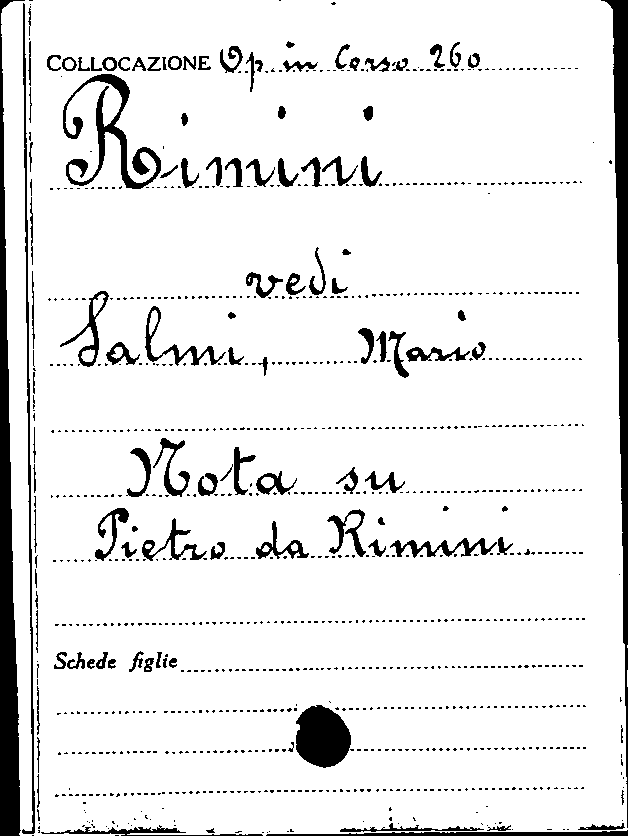 COLLOCAZIONE Op in Corso 260
Rimini
vedi
Salmi, Mario
Nota su
Pietro da Rimini.
Schede figlie